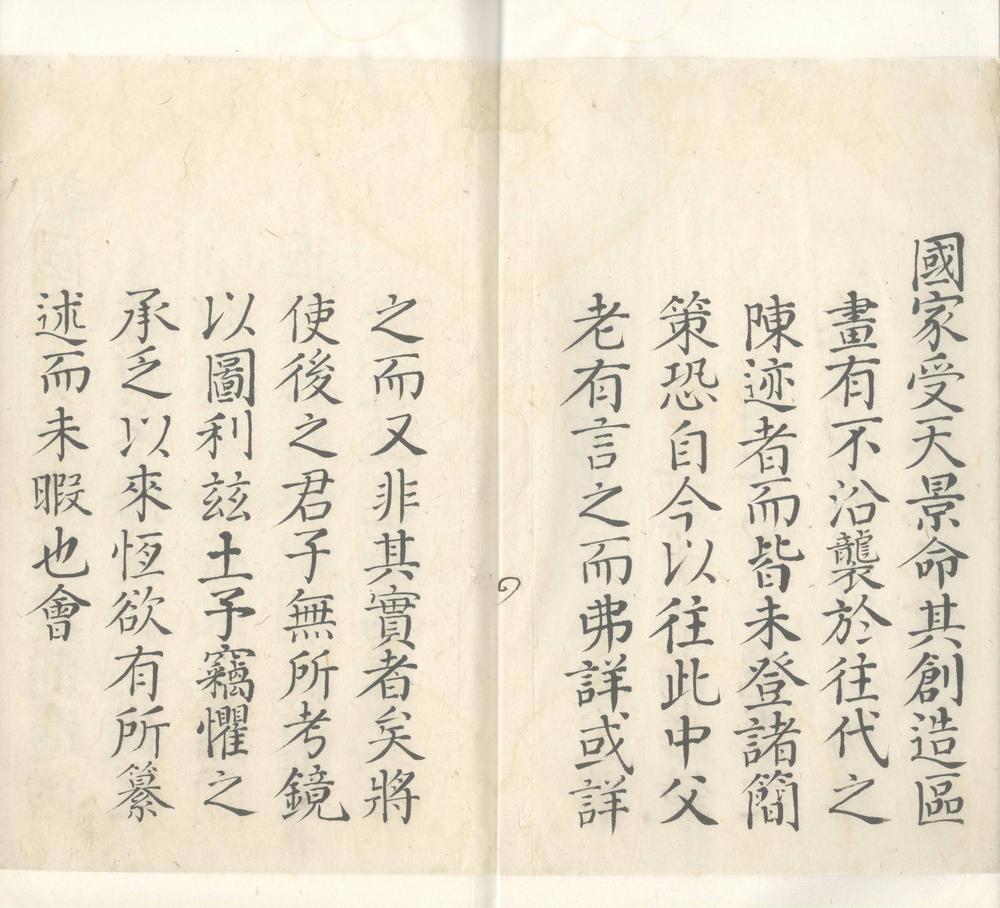 國家受天景命其創造區
畫有不沿襲於往代之
陳迹者而皆未登諸簡
策恐自今以往此中父
老有言之而弗詳或詳
之而又非其實者矣將
使後之君子無所考鏡
以圖利茲土予竊懼之
承乏以來恆欲有所纂
述而未暇也會